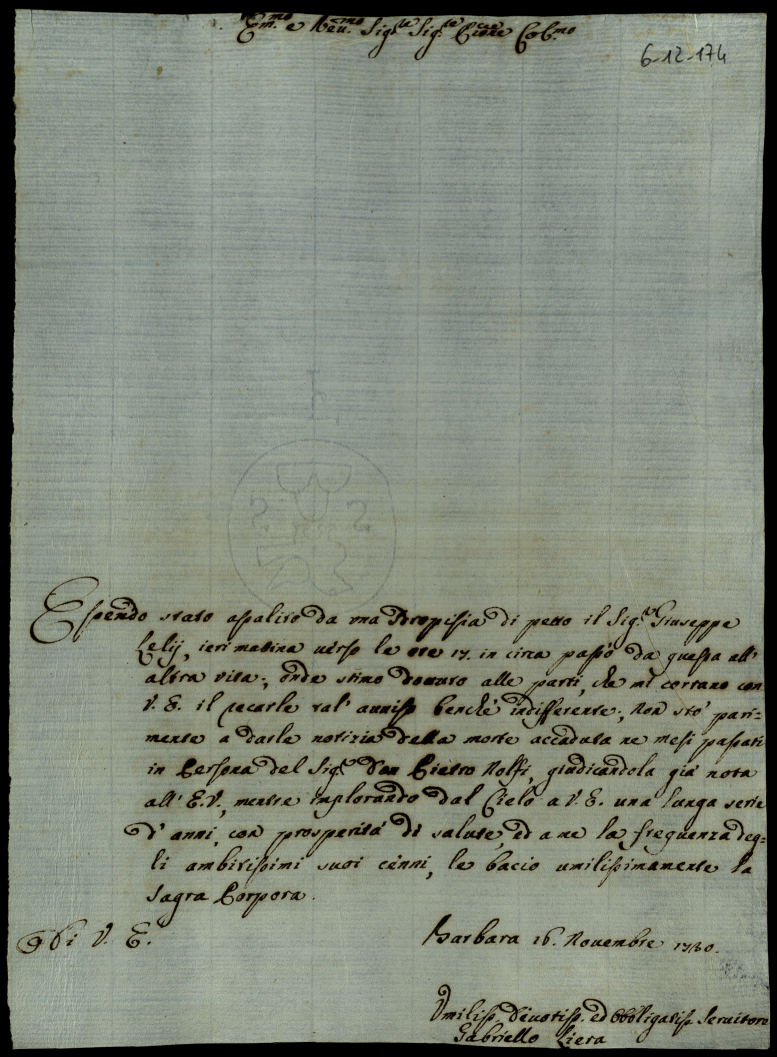 Em.mo e Reu.mo Sig.re Sig.re P.rone Col.mo
6-12-174
Essendo stato assalito da una Idropisia di petto il Sig.r Giuseppe
Lelij, ieri matina uerso le ore 17. in circa passò da questa all'
altra vita; onde stimo douuto alle parti, che mi corrano con
V. E. il recarle tal' auuiso benché indifferente; Non stò pari=
mente a darle notizia della morte accaduta ne mesi passati
in Persona del Sig.r Don Pietro Nolfi, giudicandola già nota
all' E.V., mentre implorando dal Cielo a V. E. una lunga serie
d' anni, con prosperità di salute, ed a me la frequenza deg=
li ambitissimi suoi cenni, le bacio umilissimamente la
Sagra Porpora.
Di V. E.
Barbara 16. Nouembre 1730.
Vmiliss. Deuotiss. ed Obbligatiss. Seruitore
Gabriello Liera